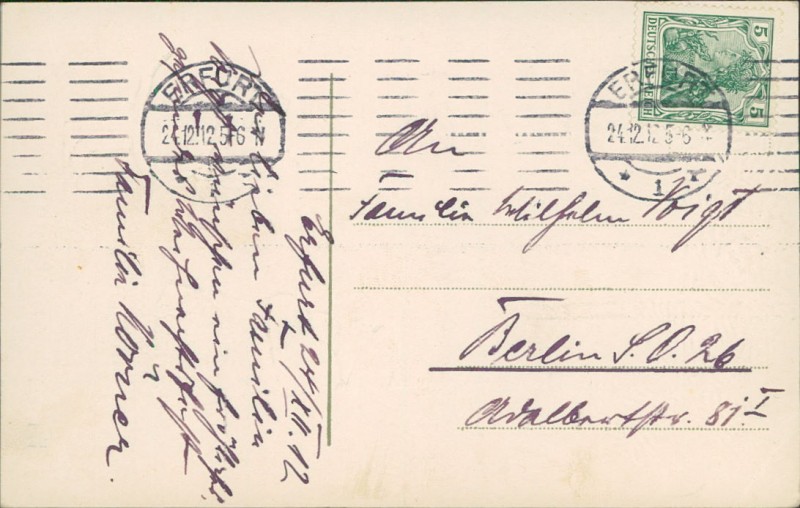 Erfurt 24/XII.12
lieben Familie
wünschen ein fröhliches
Familie Körner.
An
Familie Wilhelm Voigt
Berlin S.O. 26
Adalbertstr. 81.I
ERFURT
24.12.12.5-6 N
* 1 *
ERFURT
24.12.12.5-6 N
1
DEUTSCHES REICH
5
5